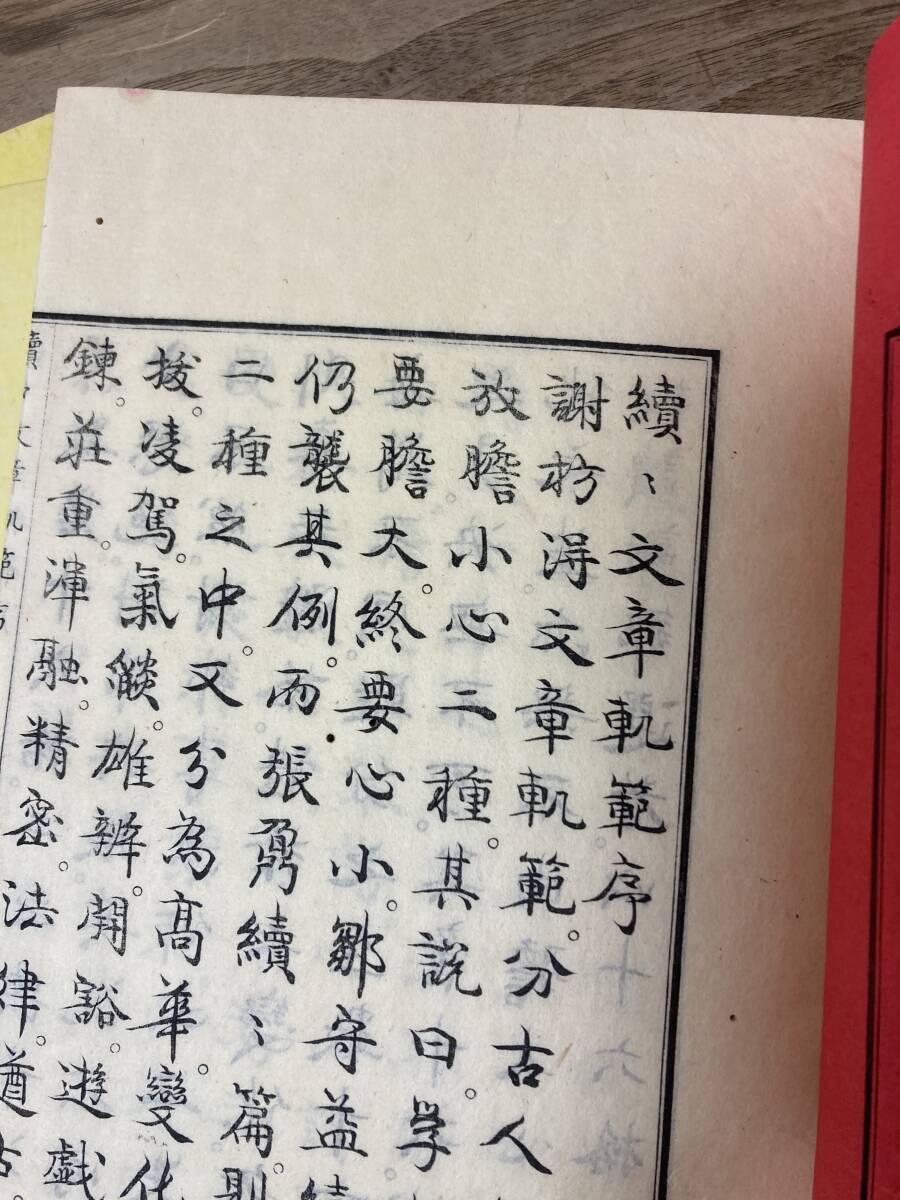 續〻文章軌範序
謝枋得文章軌範。分古人
放膽小心二種。其說曰。学
要膽大。終要心小。鄒守益
仍襲其例。而張鼐續〻篇。則
二種之中。又分為高華。變化
拔。凌駕。氣燄。雄辨。開豁。遊戲
鍊。莊重。渾融。精密。法律。遒古